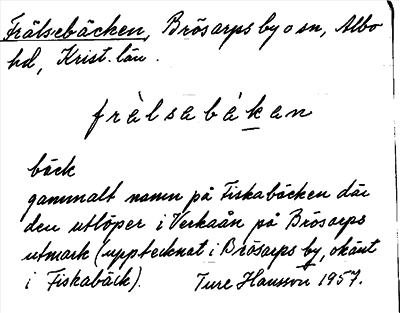 Frälsebäcken, Brösarps by o sn, Albo
hd, Krist. län.
frälsabäkan
bäck
gammalt namn på Fiskabäcken där
den utlöper i Verkaån på Brösarps
utmark (upptecknat i Brösarps by, okänt
i Fiskabäck). Ture Hansson 1957.